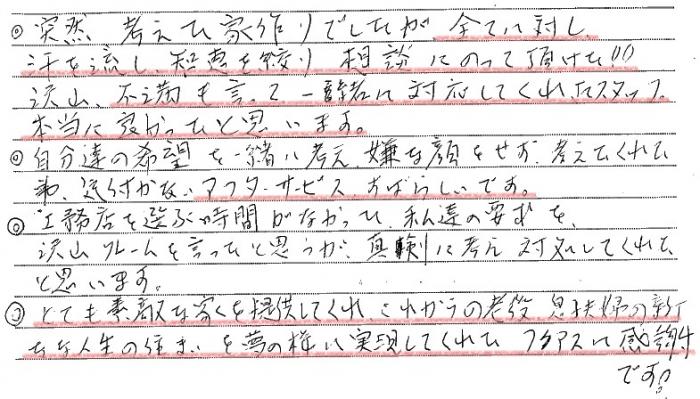 ◎ 突然 考えた家作りでしたが、全てに対し、
汗を流し、知恵を絞り 相談にのって頂けた!!
沢山、不満も言って 一諸に対応してくれたスタッフ、
本当に良かったと思います。
◎ 自分達の希望を一緒に考え、嫌な顔をせず、考えてくれた
事、気付かない アフターサービス すばらしいです。
◎ 工務店を選ぶ時間がなかった 私達の要求を、
沢山クレームを言ったと思うが、真剣に考え 対処してくれた
と思います。
◎ とても素敵な家を提供してくれ、これからの老後 息子夫婦の新
たな人生の住まいを夢の様に実現してくれた フクアスに感謝
です!